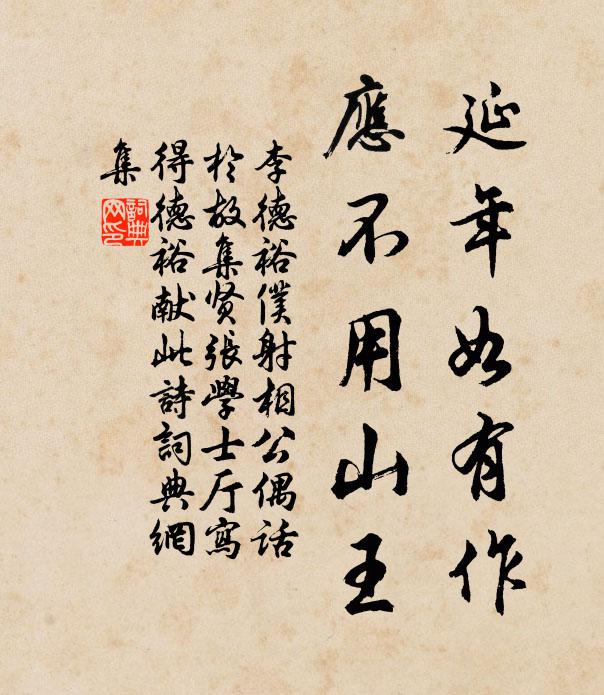 延年如有作
應不用山王
李德裕僕射相公偶話
於故集贤張學士厅寫
得德裕献此詩詞典網
集
詞典網印